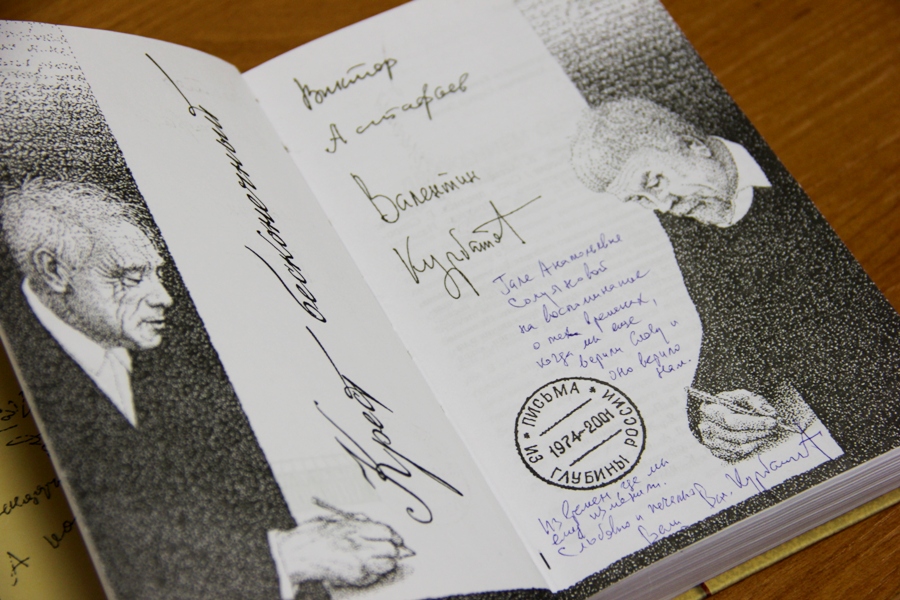 Крест бесконечный
Виктор
Астафьев
Валентин
Курбатов
Гале Анатольевне
на воспоминание
о тех временах,
когда мы еще
верили Слову и
оно верило
нам.
ПИСЬМА
ИЗ ГЛУБИНЫ РОССИИ
1974-2001
Из времен, где мы
ещё
с любовью и
Ваш Вл. Курбатов
А